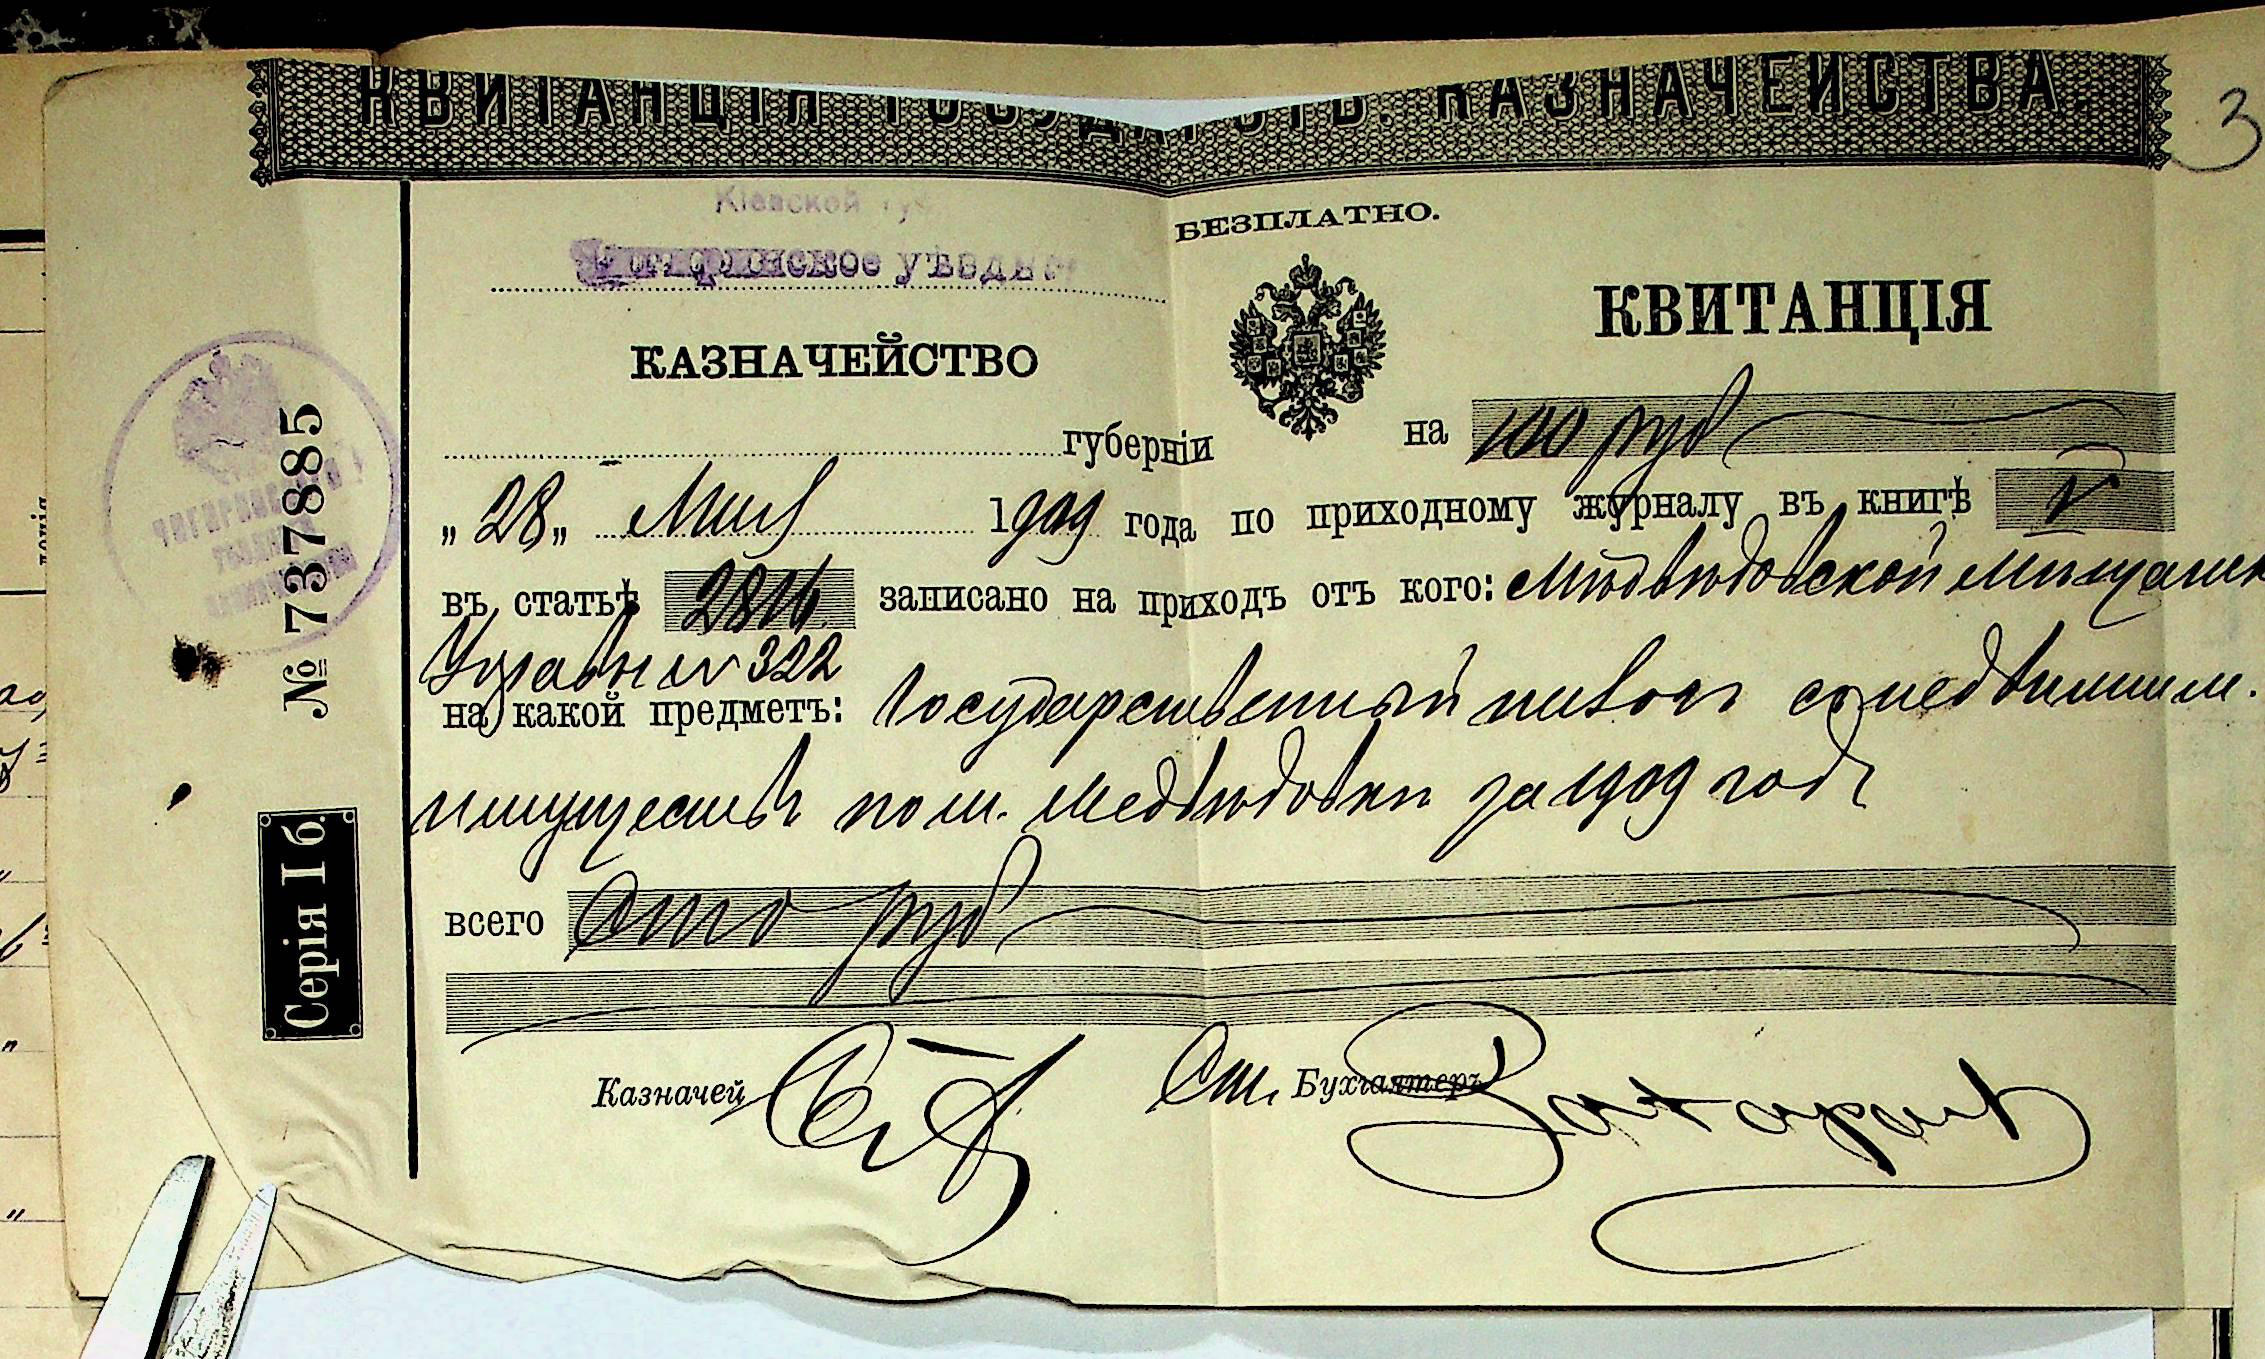 КВИТАНЦІЯ ГОСУДАРСТВ. КАЗНАЧЕЙСТВА.
3
Кіевской губ
Чигиринское уѣздн
БЕЗПЛАТНО.
КАЗНАЧЕЙСТВО
КВИТАНЦІЯ
губерніи
на 100 руб
„28„ Мая 1909 года по приходному журналу въ книгѣ V
въ статьѣ 2816 записано на приходъ отъ кого: Медвѣдовской Мѣщанск
Управы № 322
на какой предметъ: Государственный налогъ съ недвижим.
имуществъ по м. Медвѣдовкѣ за 1909 годъ
всего Сто руб
Казначей
Ст. Бухгалтеръ
№ 737885
Серія I б.